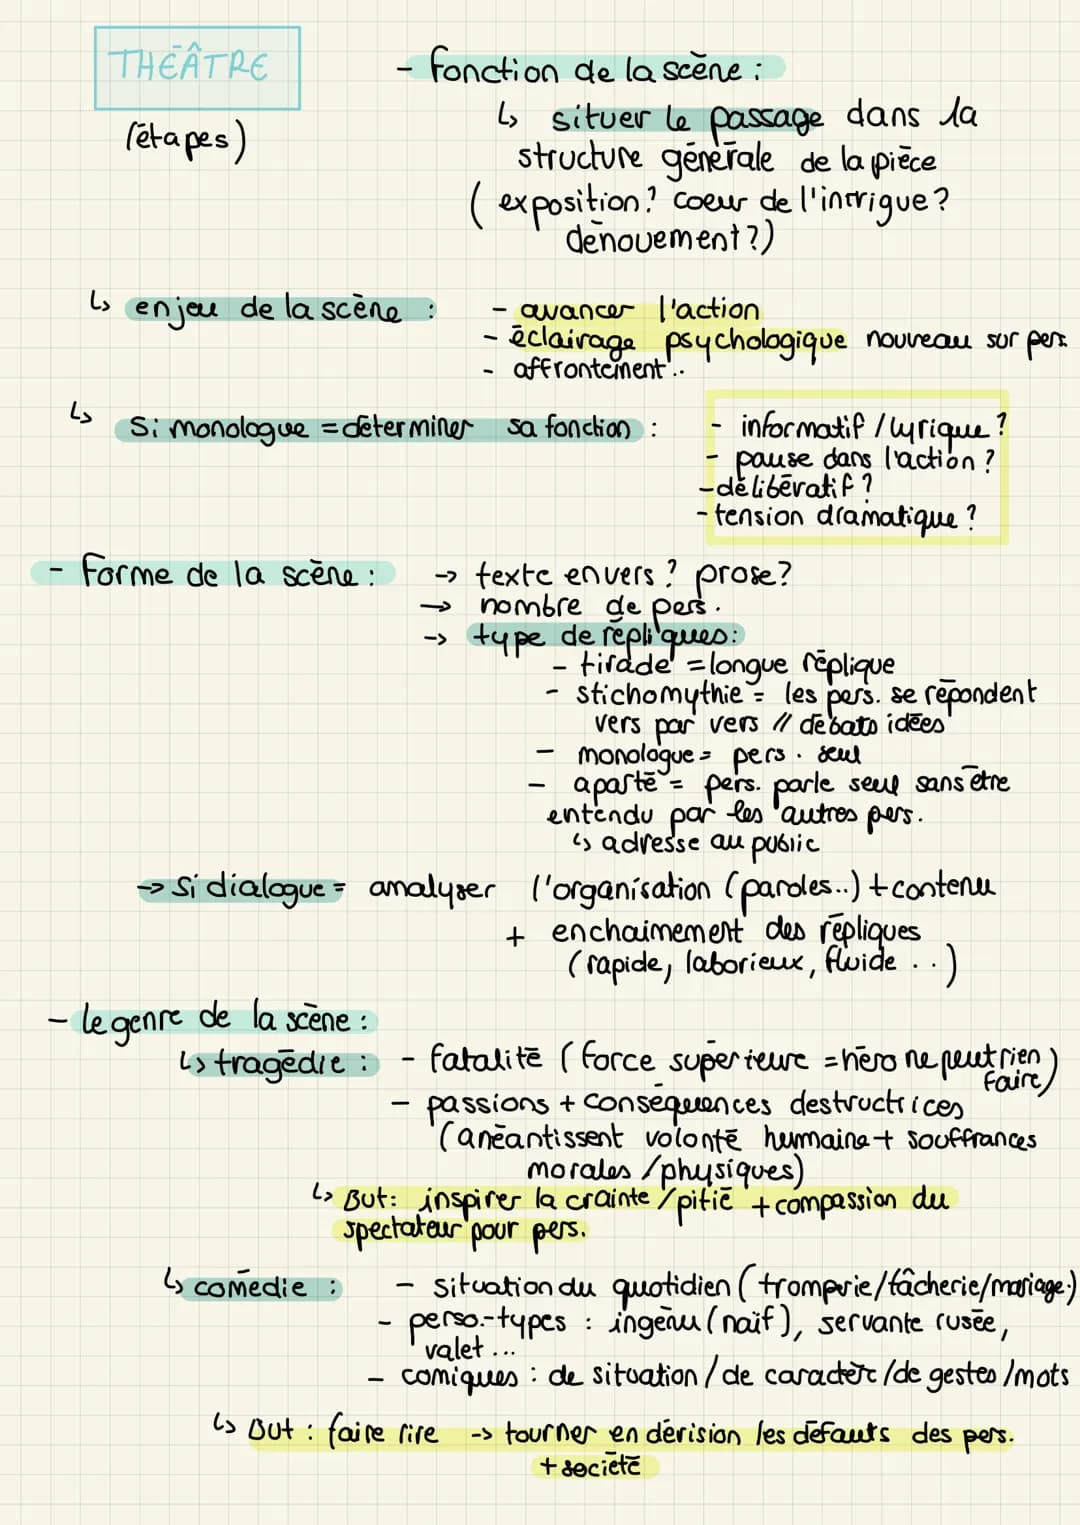 THÉÂTRE
(étapes)
- fonction de la scène :
↳ situer le passage dans la
structure générale de la pièce
( exposition? coeur de l'intrigue?
dénouement?)
↳ enjeu de la scène :
- avancer l'action
- éclairage psychologique nouveau sur pers.
- affrontement..
↳ Si monologue = déterminer sa fonction :
- informatif / lyrique ?
- pause dans l'action ?
- délibératif ?
- tension dramatique ?
- Forme de la scène :
→ texte en vers ? prose?
→ nombre de pers.
→ type de répliques:
- tirade = longue réplique
- stichomythie = les pers. se répondent
vers par vers // débats idées
- monologue = pers. seul
- aparté = pers. parle seul sans être
entendu par les autres pers.
↳ adresse au public
→ Si dialogue = analyser l'organisation (paroles..) + contenu
+ enchaimement des répliques
(rapide, laborieux, fluide ..)
- le genre de la scène :
↳ tragédie :
- fatalité ( force supérieure = héro ne peut rien
faire)
- passions + conséquences destructrices
(anéantissent volonté humaine + souffrances
morales /physiques)
↳ But: inspirer la crainte / pitié + compassion du
spectateur pour pers.
↳ comédie :
- situation du quotidien ( tromperie/fâcherie/mariage.)
- perso.-types : ingénu (naïf), servante rusée,
valet ...
- comiques : de situation / de caractèr /de gestes /mots
↳ But : faire rire -> tourner en dérision les défauts des pers.
+ société